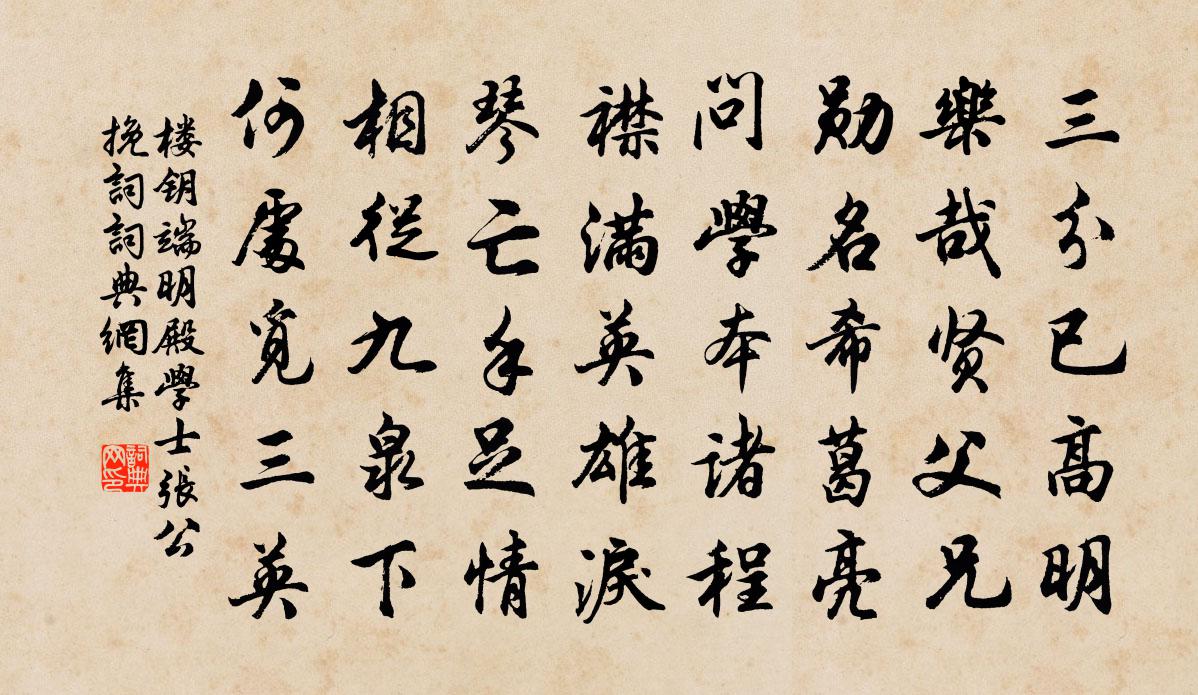 三分已高明
樂哉贤父兄
勋名希葛亮
问學本诸程
襟满英雄淚
琴亡手足情
相從九泉下
何處覓三英
楼钥端明殿學士張公
挽詞詞典網集
詞典
网印